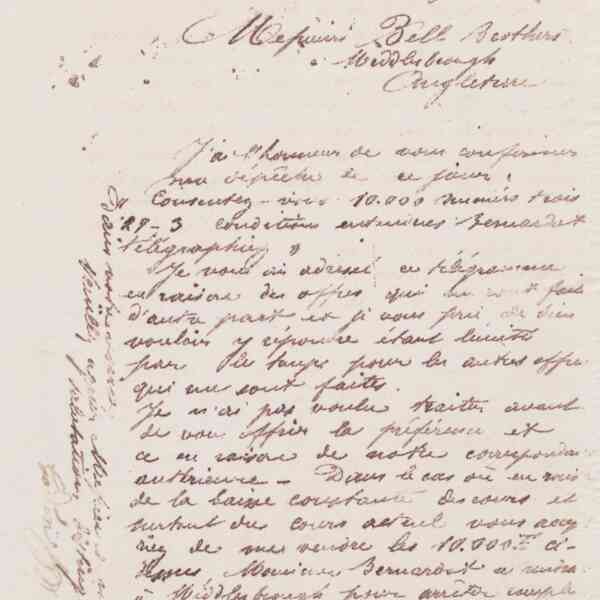 Messieurs Bell Brothers
Middlesbrough
Angleterre
J'ai l'honneur de vous confirmer
ma dépêche de ce jour.
" Consentez-vous 10.000 premiers trois
29-3 conditions Bernardot
télégraphiez "
Je vous ai adressé ce télégramme
en raison des offres qui me sont fait
d'autre part et je vous prie de bien
vouloir y répondre étant limité
par le temps pour les autres offres
qui me sont faites.
Je n'ai pas voulu traiter avant
de vous offrir la préférence et
ce en raison de notre correspondance
antérieure - Dans le cas où en raison
de la baisse constante des cours et
surtout du cours actuel vous
de me vendre les 10.000 ci-
Monsieur Bernardot
à Middlesbrough pour arrêter
dans votre
Veuillez agréer Messieurs
salutations